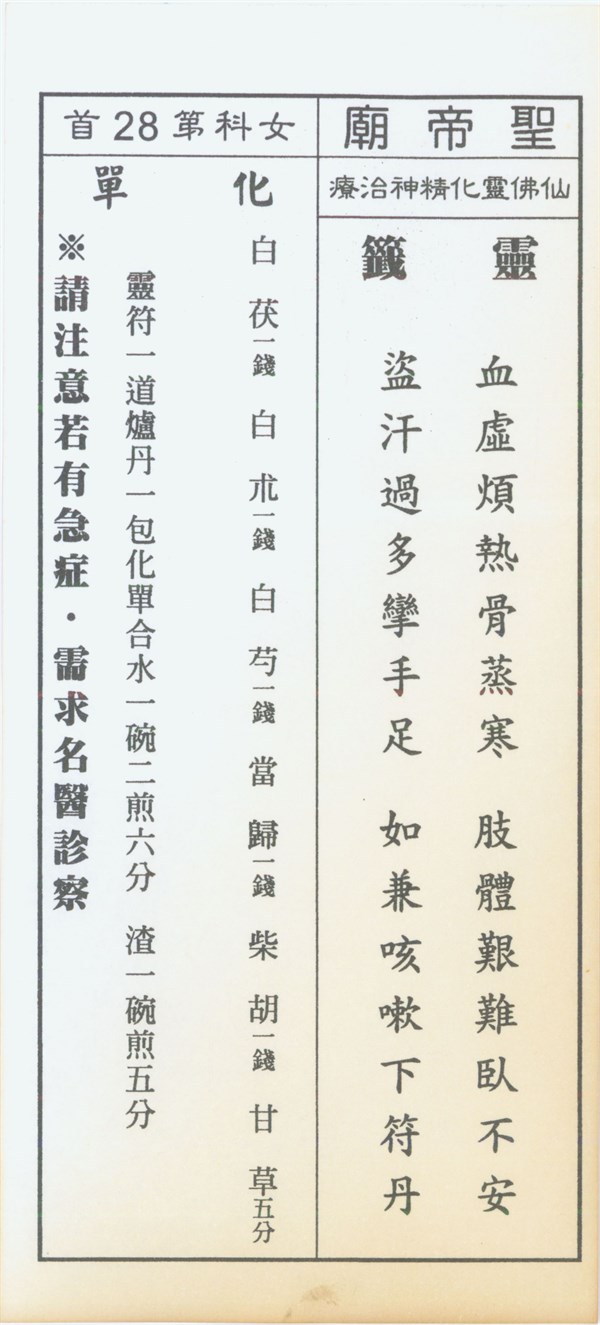 聖帝廟
仙佛靈化精神治療
靈籤
血虛煩熱骨蒸寒 肢體艱難臥不安
盜汗過多攣手足 如兼咳嗽下符丹
女科第28首
化單
白茯一錢 白朮一錢 白芍一錢 當歸一錢 柴胡一錢 甘草五分
靈符一道爐丹一包化單合水一碗二煎六分 渣一碗煎五分
※請注意若有急症・需求名醫診察